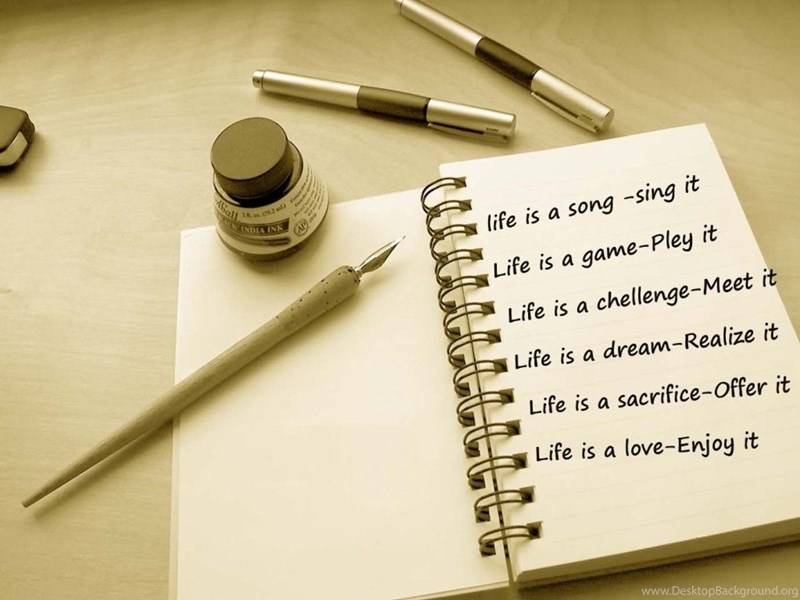 2 fl. oz.
INDIA INK
AP
life is a song -sing it
Life is a game-Pley it
Life is a chellenge-Meet it
Life is a dream-Realize it
Life is a sacrifice-Offer it
Life is a love-Enjoy it
www.DesktopBackground.org